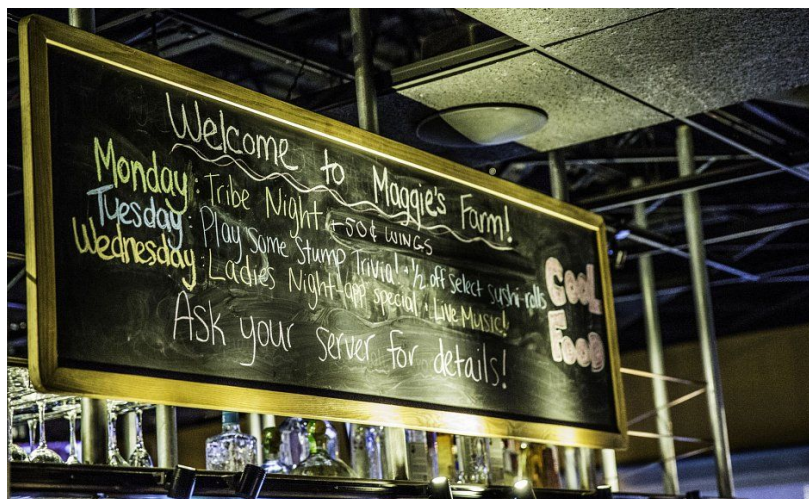 Welcome to Maggie's Farm!
Monday: Tribe Night +50¢ WINGS
Tuesday: Play Some Stump Trivia! : ½ off Select sushi rolls
Wednesday: Ladies Night app special : Live Music!
Ask your server for details!
COOL
FOOD